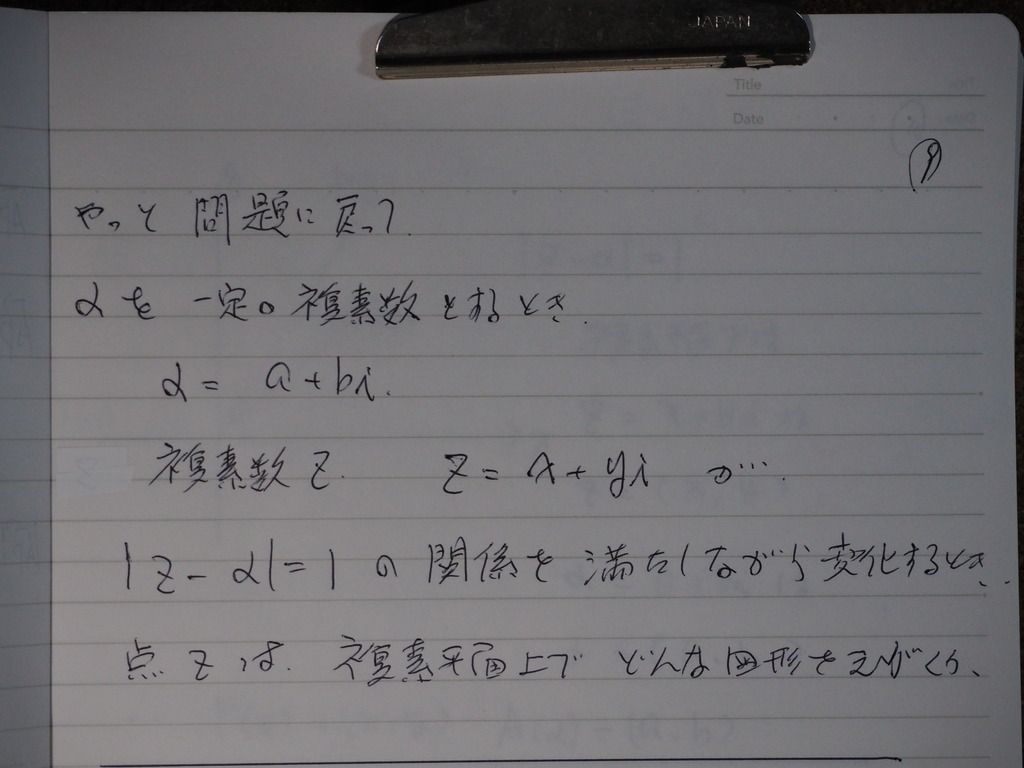 JAPAN
Title
Date
9
やっと 問題に戻って.
αを 一定の複素数とするとき.
α = a + bi.
複素数 z. z = x + yi が…
|z - α| = 1 の 関係を 満たしながら変化するとき.
点 z は. 複素平面上で どんな図形をえがくか、